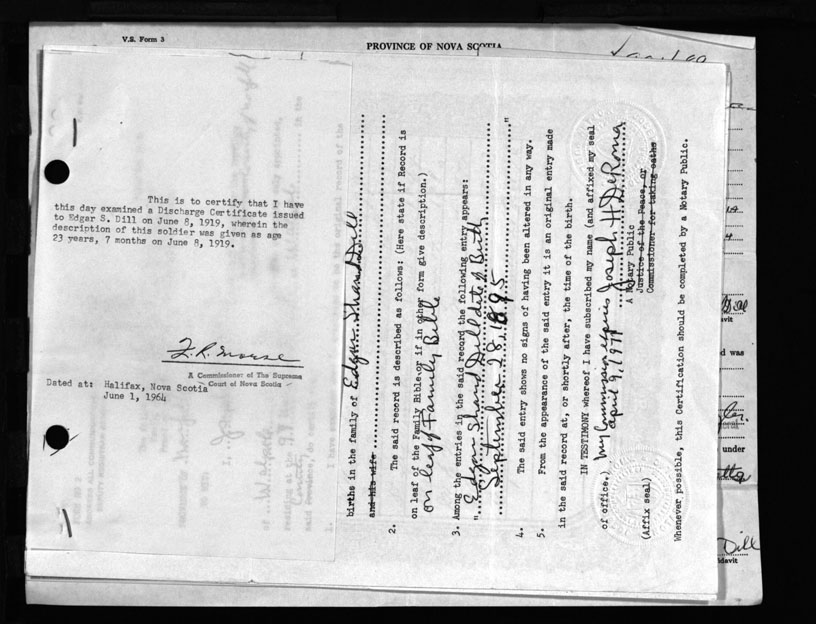 V.S. Form 3
PROVINCE OF NOVA SCOTIA
This is to certify that I have
this day examined a Discharge Certificate issued
to Edgar S. Dill on June 8, 1919, wherein the
description of this soldier was given as age
23 years, 7 months on June 8, 1919.
A Commissioner of The Supreme
Court of Nova Scotia
Dated at: Halifax, Nova Scotia
June 1, 1964
births in the family of Edgar Shand Dill
and his wife
2. The said record is described as follows: (Here state if Record is
on leaf of the Family Bible or if in other form give description.)
on leaf of Family Bible
3. Among the entries in the said record the following entry appears:
"Edgar Shand Dill date of Birth
September 28, 1895"
4. The said entry shows no signs of having been altered in any way.
5. From the appearance of the said entry it is an original entry made
in the said record at, or shortly after, the time of the birth.
IN TESTIMONY whereof I have subscribed my name (and affixed my seal
of office.) My Commission expires Joseph H DeRoma
April 9, 1971
A Notary Public
Justice of the Peace, or
Commissioner for taking oaths
(Affix seal)
Whenever possible, this Certification should be completed by a Notary Public.
d was
under
Dill